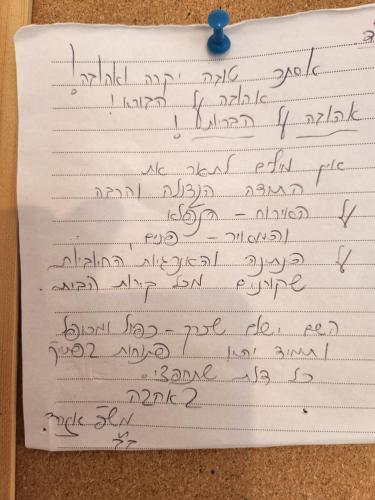 אסתר טובה יקרה ואהובה!
אהובה על הבורא!
אהובה על הבריות!
אין מילים לתאר את
התודה הגדולה והרבה
על האירוח - הנפלא
והמאיר - פנים,
על הנתינה והאנרגיות החיוביות
שקורנים מכל קירות הבית.
השם ישלם שכרך - כפול ומכופל
ותמיד יהיו פתוחות בפניך
כל דלת שתחפצי.
באהבה
משפ'